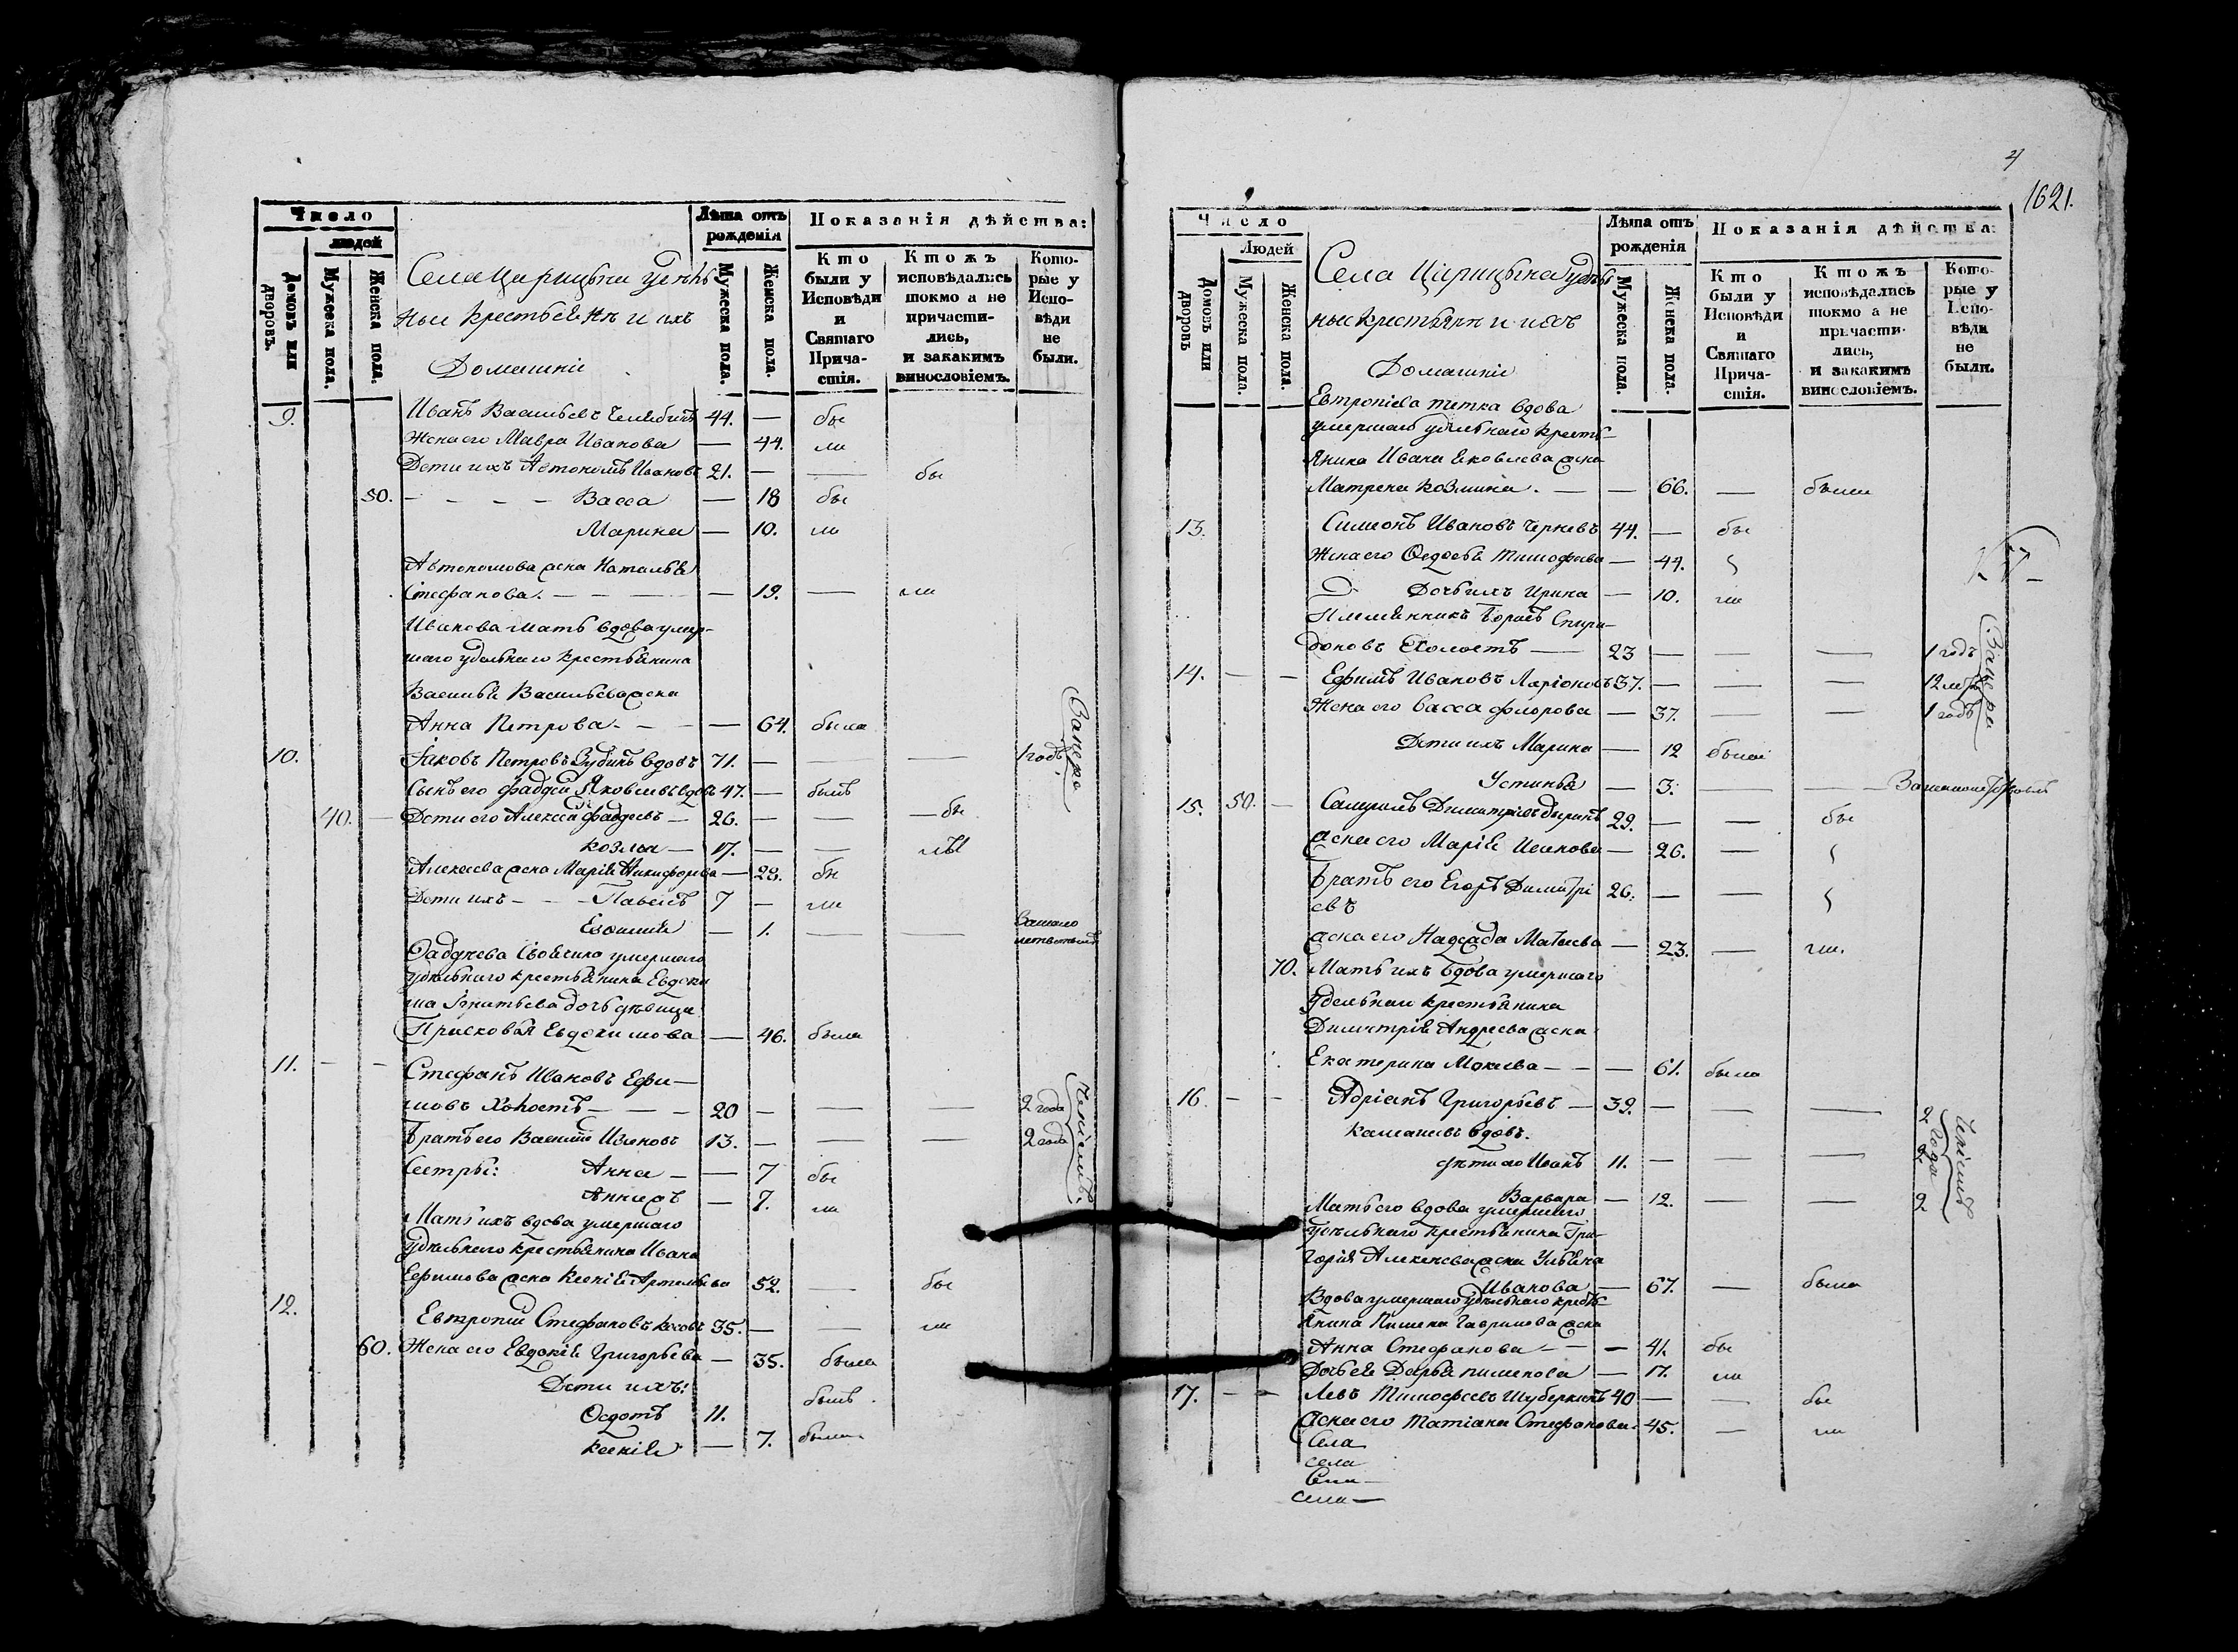 Число
людей
Домовъ или дворовъ.
Мужеска пола.
Женска пола.
Села Царицына удѣль
ные крестьяне и ихъ
Домашніи
Лѣта отъ рожденія
Мужеска пола.
Женска пола.
Показанія дѣйства:
Кто были у Исповѣди и Святаго Причастія.
Ктожъ исповѣдались токмо а не причастились, и закакимъ винословіемъ.
Которые у Исповѣди не были.
9. Иванъ Васильевъ 44. — бы
Жена его Мавра Иванова — 44. ли
Дети ихъ Автономъ Ивановъ 21. — — бы
50. — — — — Васса — 18 бы
Марина — 10. ли
Автономова жена Наталья
Стефанова. — — — — 19. — ли
Иванова мать вдова умер-
шаго удельнаго крестьянина
Василья Васильева жена
Анна Петрова — — — 64. была
10. Іаковъ Петровъ Зубинъ вдовъ 71. — — — 1 годъ
Заперо
Сынъ его Фаддей Яковлевъ вдовъ 47. — былъ
40. — Дети его Алексей Фаддеевъ — 26. — — — бы
Козма — 17. — — лы
Алексеева жена Марія Никифорова — 28. бы
Дети ихъ — — — Павелъ 7 — ли
Евфимія — 1. — — Замало летствомъ
Фаддеева своячина умершаго
удѣльнаго крестьянина Евдоки
ма Игнатьева дочь девица
Прасковья Евдокимова — 46. была
11. — — Стефанъ Ивановъ Ефи—
мовъ Холостъ — — — 20 — — — 2 года
Братъ его Василій Ивановъ 13. — — — 2 года
Сестры: Анна — — 7 бы
Анна жъ — 7. ли
Мать ихъ вдова умершаго
удѣльнаго крестьянина Ивана
Ефимова жена Ксенія Артемьева 52. — бы
12. Евтропій Стефановъ Косовъ 35. — — ли
60. Жена его Евдокія Григорьева — 35. была
Дети ихъ:
Федотъ 11. былъ
Ксенія — 7. была
4
1621.
Число
Людей
Домовъ или дворовъ
Мужеска пола.
Женска пола.
Села Царицына удѣль
ные крестьяне и ихъ
Домашніи
Лѣта отъ рожденія
Мужеска пола.
Женска пола.
Показанія дѣйства:
Кто были у Исповѣди и Святаго Причастія.
Ктожъ исповѣдались токмо а не причастились, и закакимъ винословіемъ.
Которые у Исповѣди не были.
Евтропіева тетка вдова
умершаго удѣльнаго кресть—
янина Ивана Яковлева жена
Матрена Козмина. — — 66. — была
13. Симеонъ Ивановъ 44. — бы
Жена его Федосья Тимофеева — 44.
Дочь ихъ Ирина — 10. ли
Племянникъ Борисъ Спири—
доновъ Холостъ — 23 — — — 1 годъ
14. — — Ефимъ Ивановъ Ларіоновъ 37. — — — 12 летъ
Заперо
Жена его Васса Флорова — 37. — — 1 годъ
Дети ихъ Марина — 12 была
Устинья — 3. — —
15. 50. — Самуилъ Димитріевъ 29. — — бы
Жена его Марія Иванова — 26. —
Братъ его Егоръ Димитрі
евъ 26. — —
Жена его Надежда Матвеева — 23. — ли.
70. Мать ихъ вдова умершаго
удельнаго крестьянина
Димитрія Андреева жена
Екатерина Мокеева — — — 61. была
16. — — Адріанъ Григорьевъ — 39. — — — 2
вдовъ.
дети его Иванъ 11. — — — 2
года
Варвара — 12. — — 2
Мать его вдова умершаго
удѣльнаго крестьянина Гри—
горія Алексеева жена Ульяна
Иванова — 67. — была
Вдова умершаго удѣльнаго кресть
янина Пимена Гаврилова жена
Анна Стефанова — — — 41. бы
Дочь ея Дарья Пименова — 17. ли
17. — — Левъ Тимофеевъ Шуберкинъ 40 — — бы
Жена его Татіана Стефанова. 45. — ли
Села
села
Села —
села —